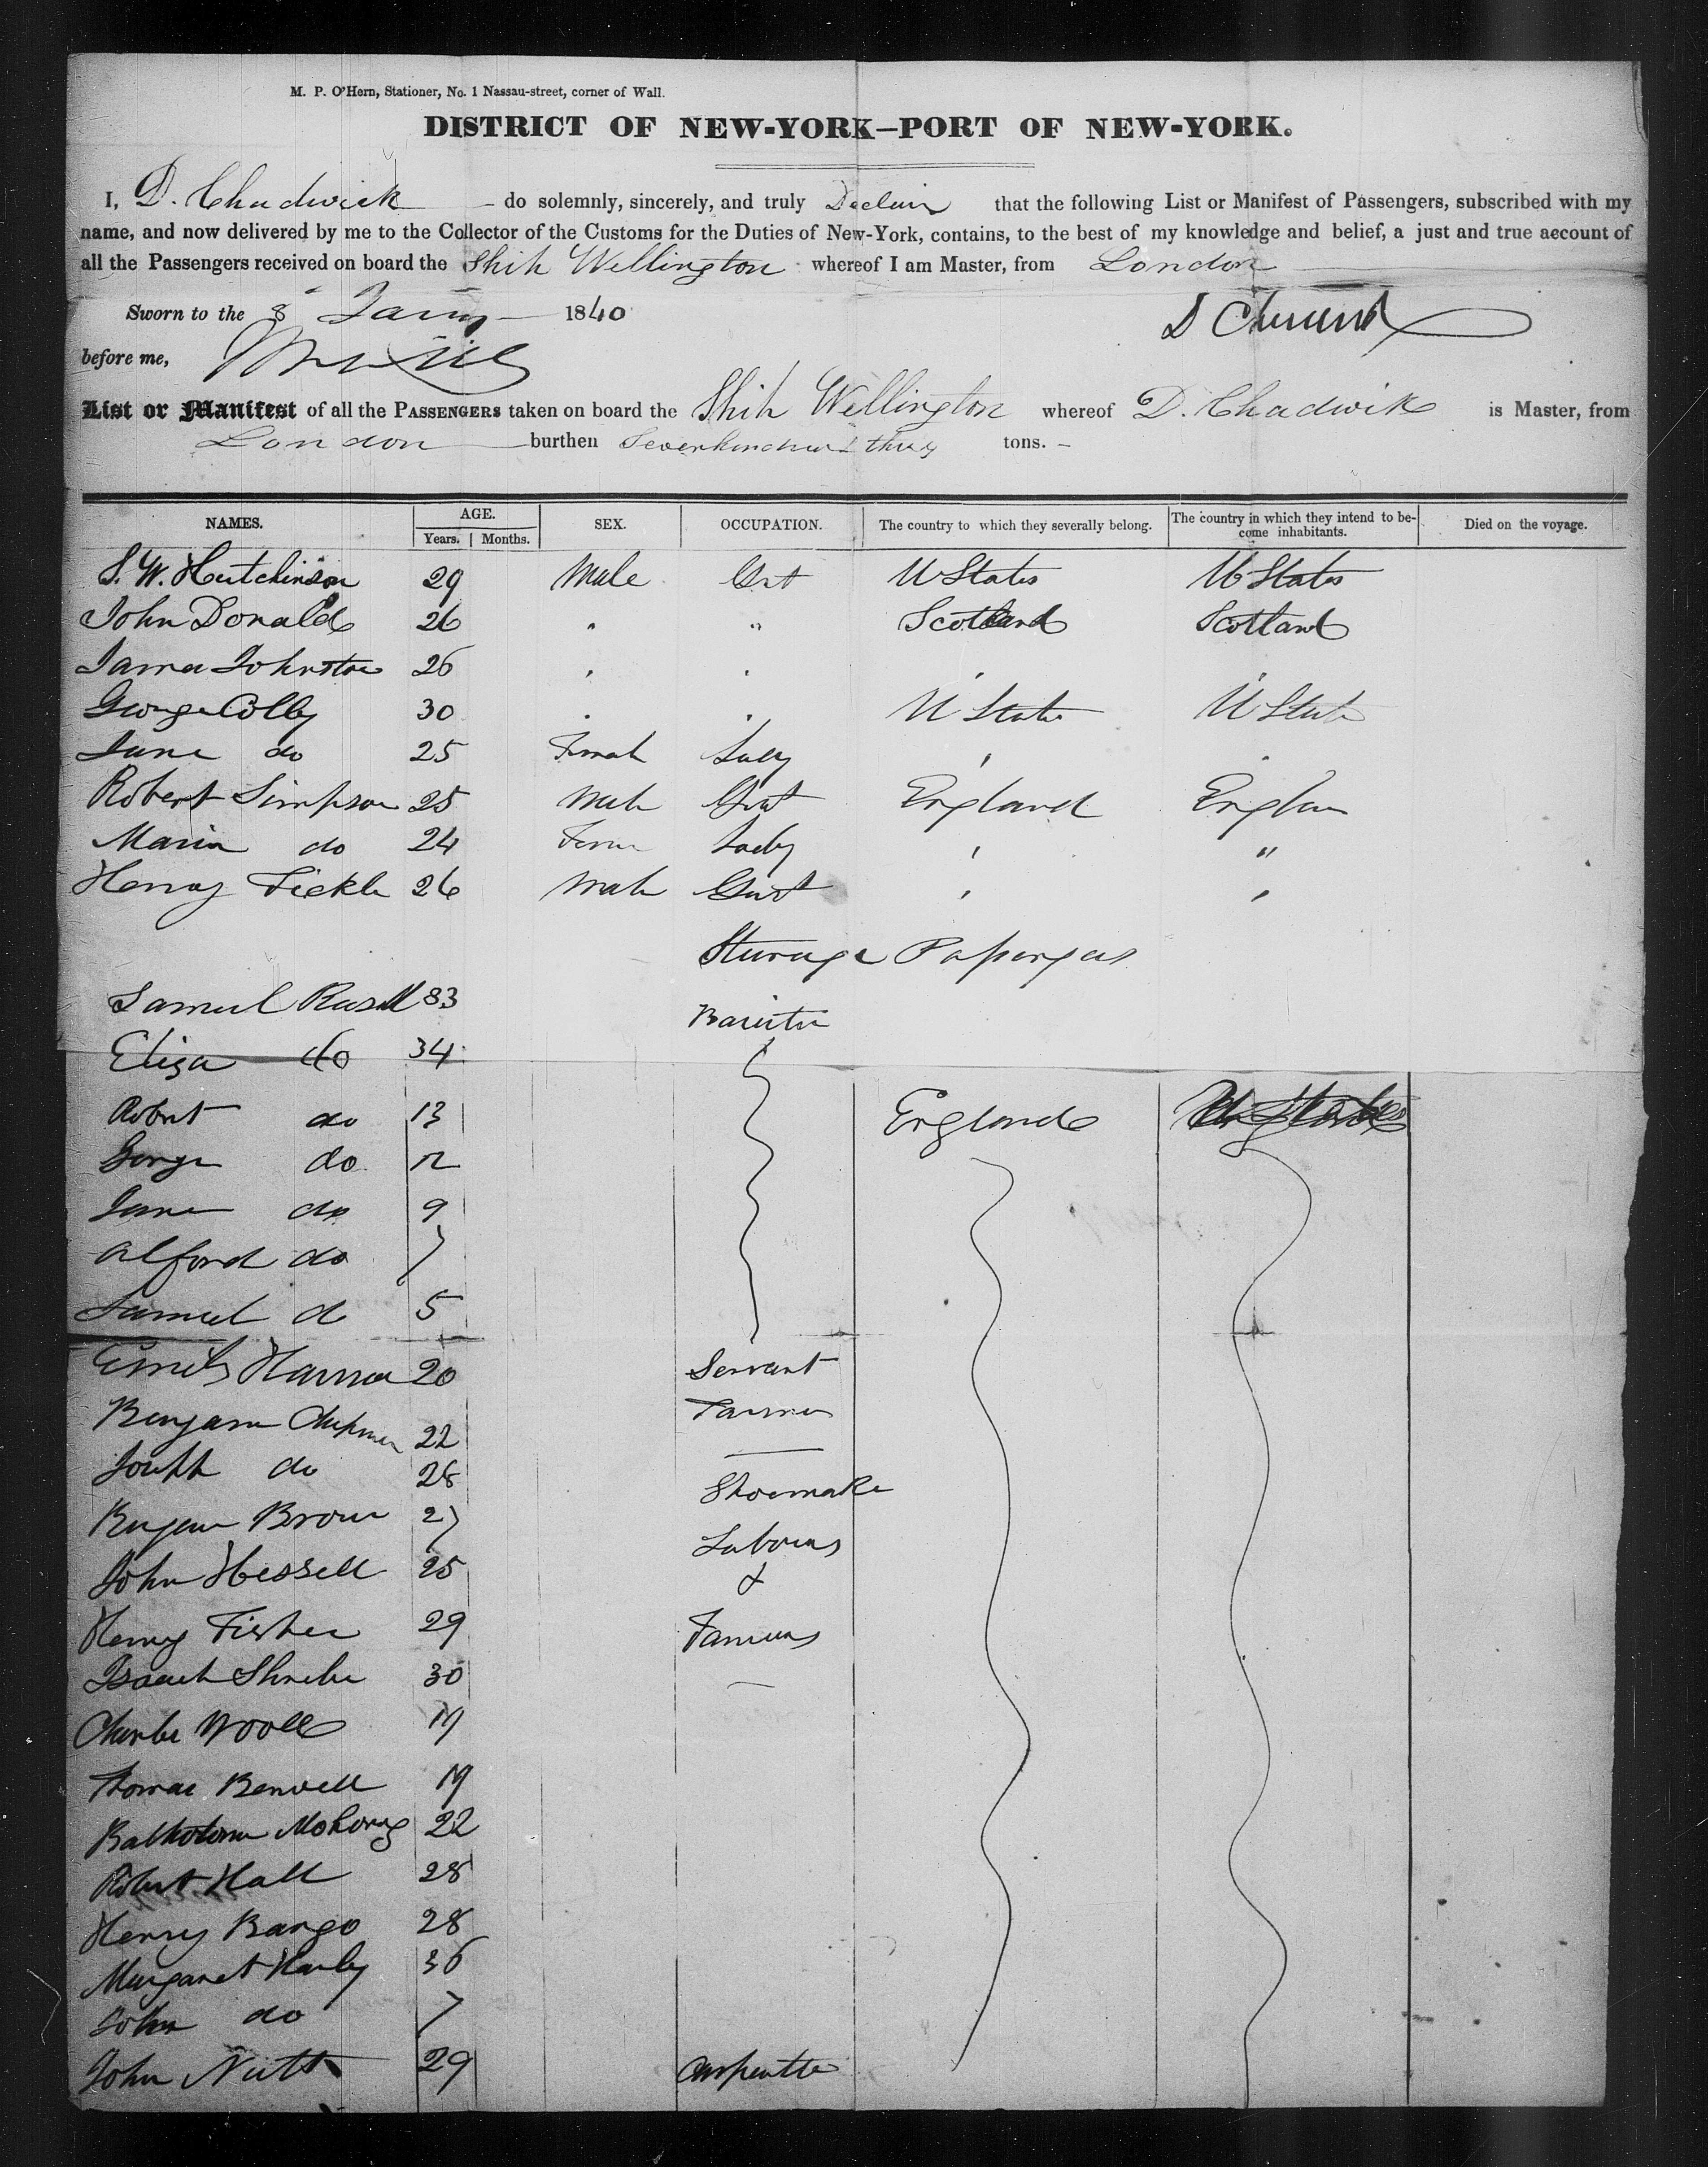 M. P. O'Hern, Stationer, No. 1 Nassau-street, corner of Wall.
DISTRICT OF NEW-YORK—PORT OF NEW-YORK.
I, D. Chadwick - do solemnly, sincerely, and truly Declair that the following List or Manifest of Passengers, subscribed with my
name, and now delivered by me to the Collector of the Customs for the Duties of New-York, contains, to the best of my knowledge and belief, a just and true account of
all the Passengers received on board the Ship Wellington whereof I am Master, from London
Sworn to the 8 Jany 1840
before me,
D Chadwick
List or Manifest of all the PASSENGERS taken on board the Ship Wellington whereof D. Chadwick is Master, from
London burthen tons. -
NAMES. AGE. SEX. OCCUPATION. The country to which they severally belong. The country in which they intend to be-
come inhabitants. Died on the voyage.
Years. Months.
S. W. Hutchinson 29 Male Gnt U States U States
John Donald 26 " " Scotland Scotland
James Johnston 26 " " " "
George Colby 30 " " U State U State
Jane do 25 Femal Lady " "
Robert Simpson 25 Male Gnt England Englan
Maria do 24 Fema Lady " "
Henry Fickle 26 Male Gnt " "
Sturage Passengers
Samuel Rusell 33
Eliza do 34
Robert do 13 England U States
George do 12
Jane do 9
Alford do 7
Samuel do 5
Emily 20 Servant
Benjam Chapman 22 Farmer
Joseph do 28
Benjam Brown 27 Shoemake
John Hessell 25 Laborers
&
Henry Fisher 29 Farmers
Isaack 30
Charles Woolls 19
Thomas Benwell 19
22
Robert Hall 28
Henry Bargo 28
Margaret Hanly 36
John do 7
John Nutt 29 Carpentter